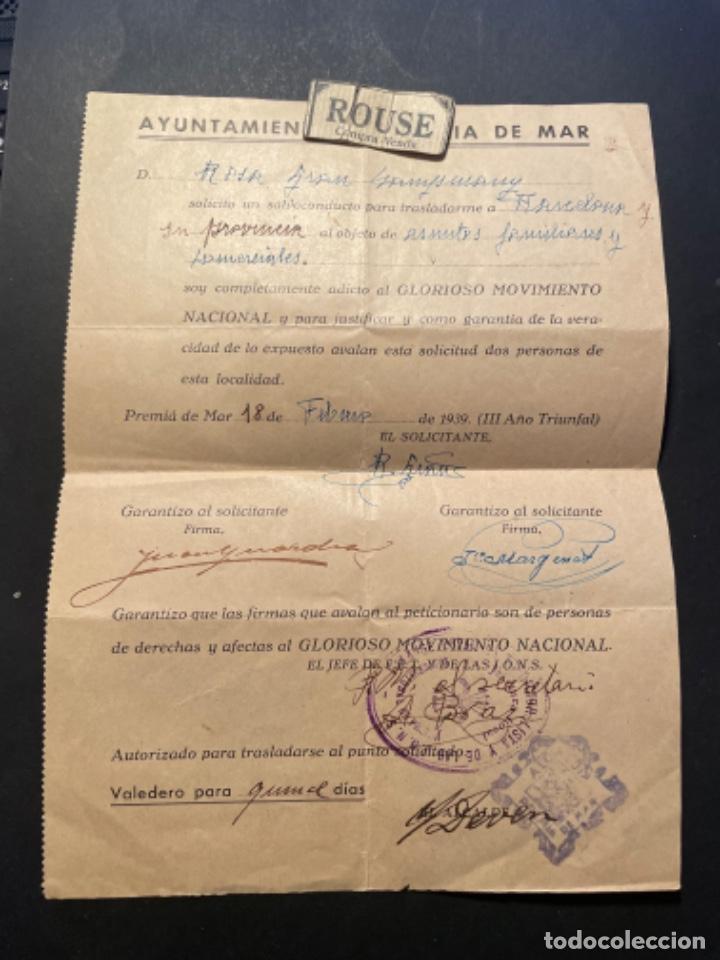 ROUSE
Compra Vende
AYUNTAMIEN IA DE MAR
D. Rosa Gran Campmany
solicito un salvoconducto para trasladarme a Barcelona y
su provincia al objeto de asuntos familiares y
comerciales.
soy completamente adicto al GLORIOSO MOVIMIENTO
NACIONAL y para justificar y como garantia de la vera-
cidad de lo expuesto avalan esta solicitud dos personas de
esta localidad.
Premiá de Mar 18 de Febrero de 1939. (III Año Triunfal)
EL SOLICITANTE,
R. Gran
Garantizo al solicitante Garantizo al solicitante
Firma, Firma,
Juan Guardia
Garantizo que las firmas que avalan al peticionario son de personas
de derechas y afectas al GLORIOSO MOVIMIENTO NACIONAL.
EL JEFE DE F.E.T. Y DE LAS J.O.N.S.
el secretario
Autorizado para trasladarse al punto solicitado
Valedero para quince días
EL ALCALDE
DE MAR
todocoleccion
todocoleccion.net